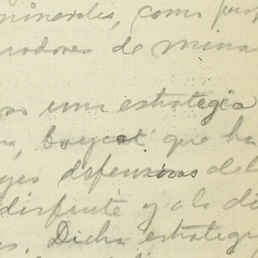 minerales, como
de mina
una estrategia
boycot que ha
yes defensivas del
disfrute y a la di
Dicha estrateg